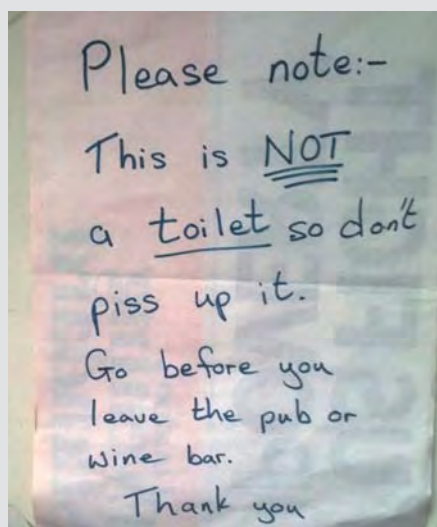 Please note:-
This is NOT
a toilet so don't
piss up it.
Go before you
leave the pub or
wine bar.
Thank you